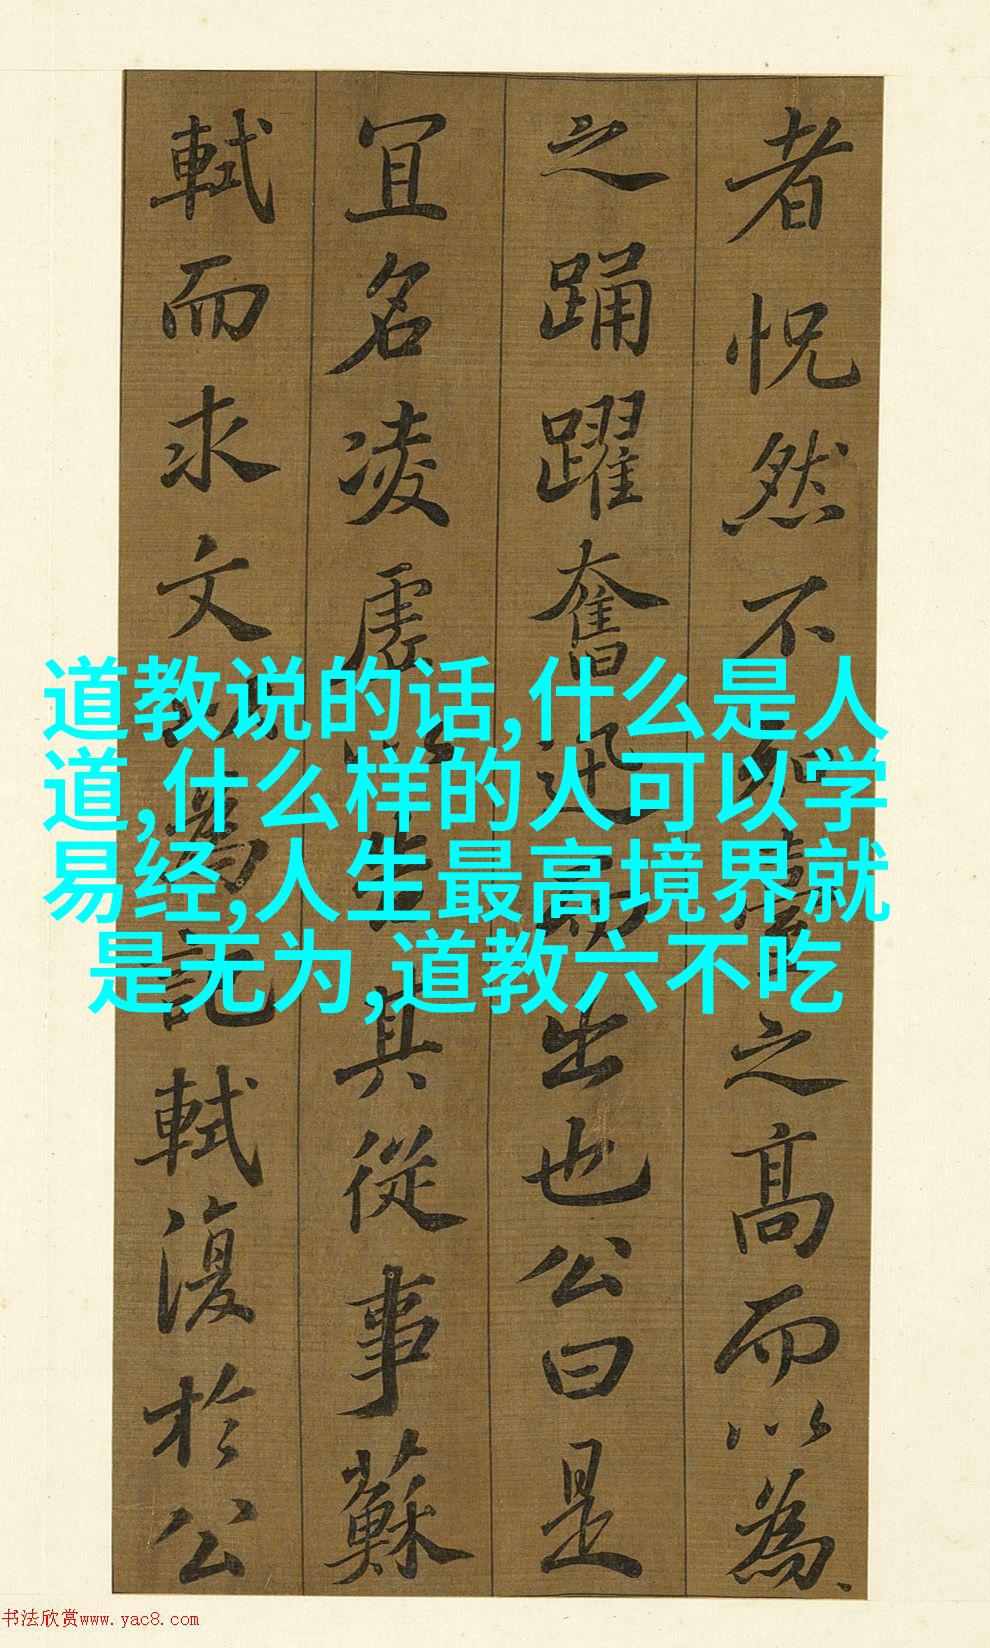 者怳然不知臺之高而以為
之踊躍奮迅而出也公曰是
冝名凌虛以告其從事蘇
軾而求文以為記軾復於公
道教说的话,什么是人
道,什么样的人可以学
易经,人生最高境界就
是无为,道教六不吃
书法欣赏www.yac8.com